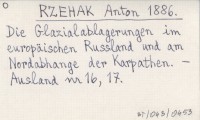 O
RZEHAK Anton 1886.
Die Glazialablagerungen im
europäischen Russland und am
Nordabhange der Karpathen. –
Ausland nr 16, 17.